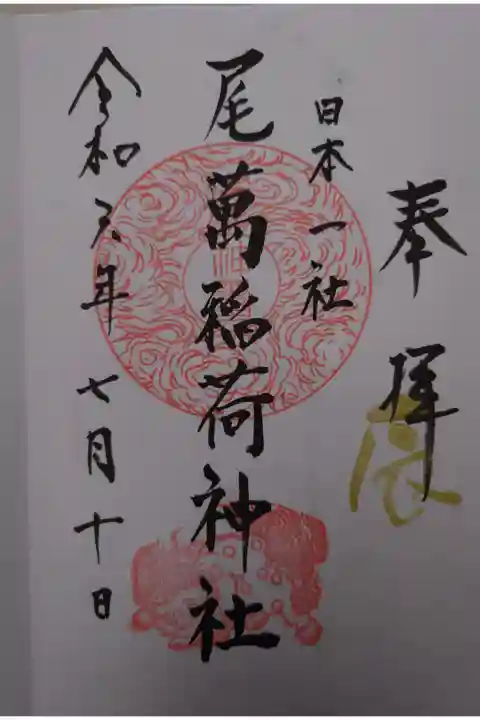 奉拝
辰
日本一社
尾萬稲荷神社
令和六年七月十日